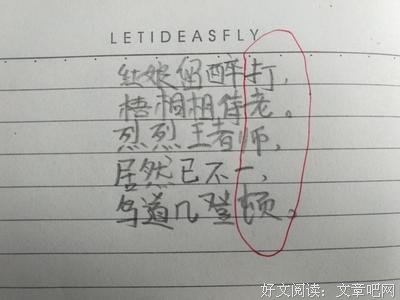 LETIDEASFLY
红娘留醉打，
梧桐相待老。
烈烈王者师，
居然已不一，
鸟道几登顿。
好文阅读：文章吧网